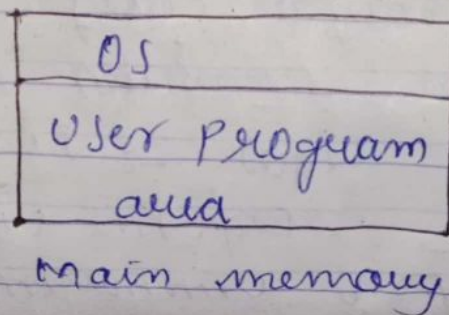 OS
User Program
area
main memory